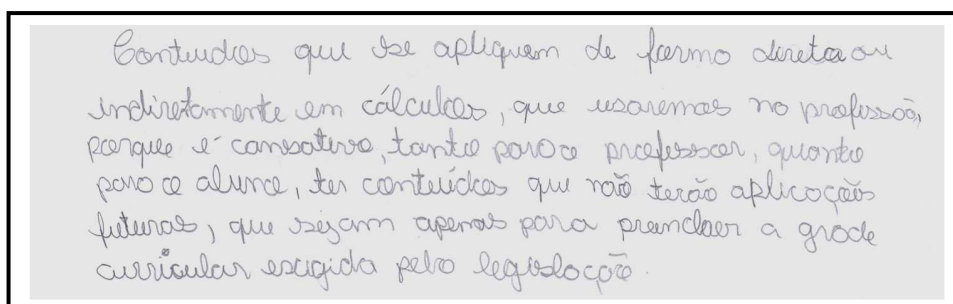 Conteudos que se apliquem de forma direta ou
indiretamente em cálculos, que usaremos na profissão,
porque é cansativo, tanto para o professor, quanto
para o aluno, ter conteúdos que não terão aplicações
futuras, que sejam apenas para preencher a grade
curricular exigida pela legislação.